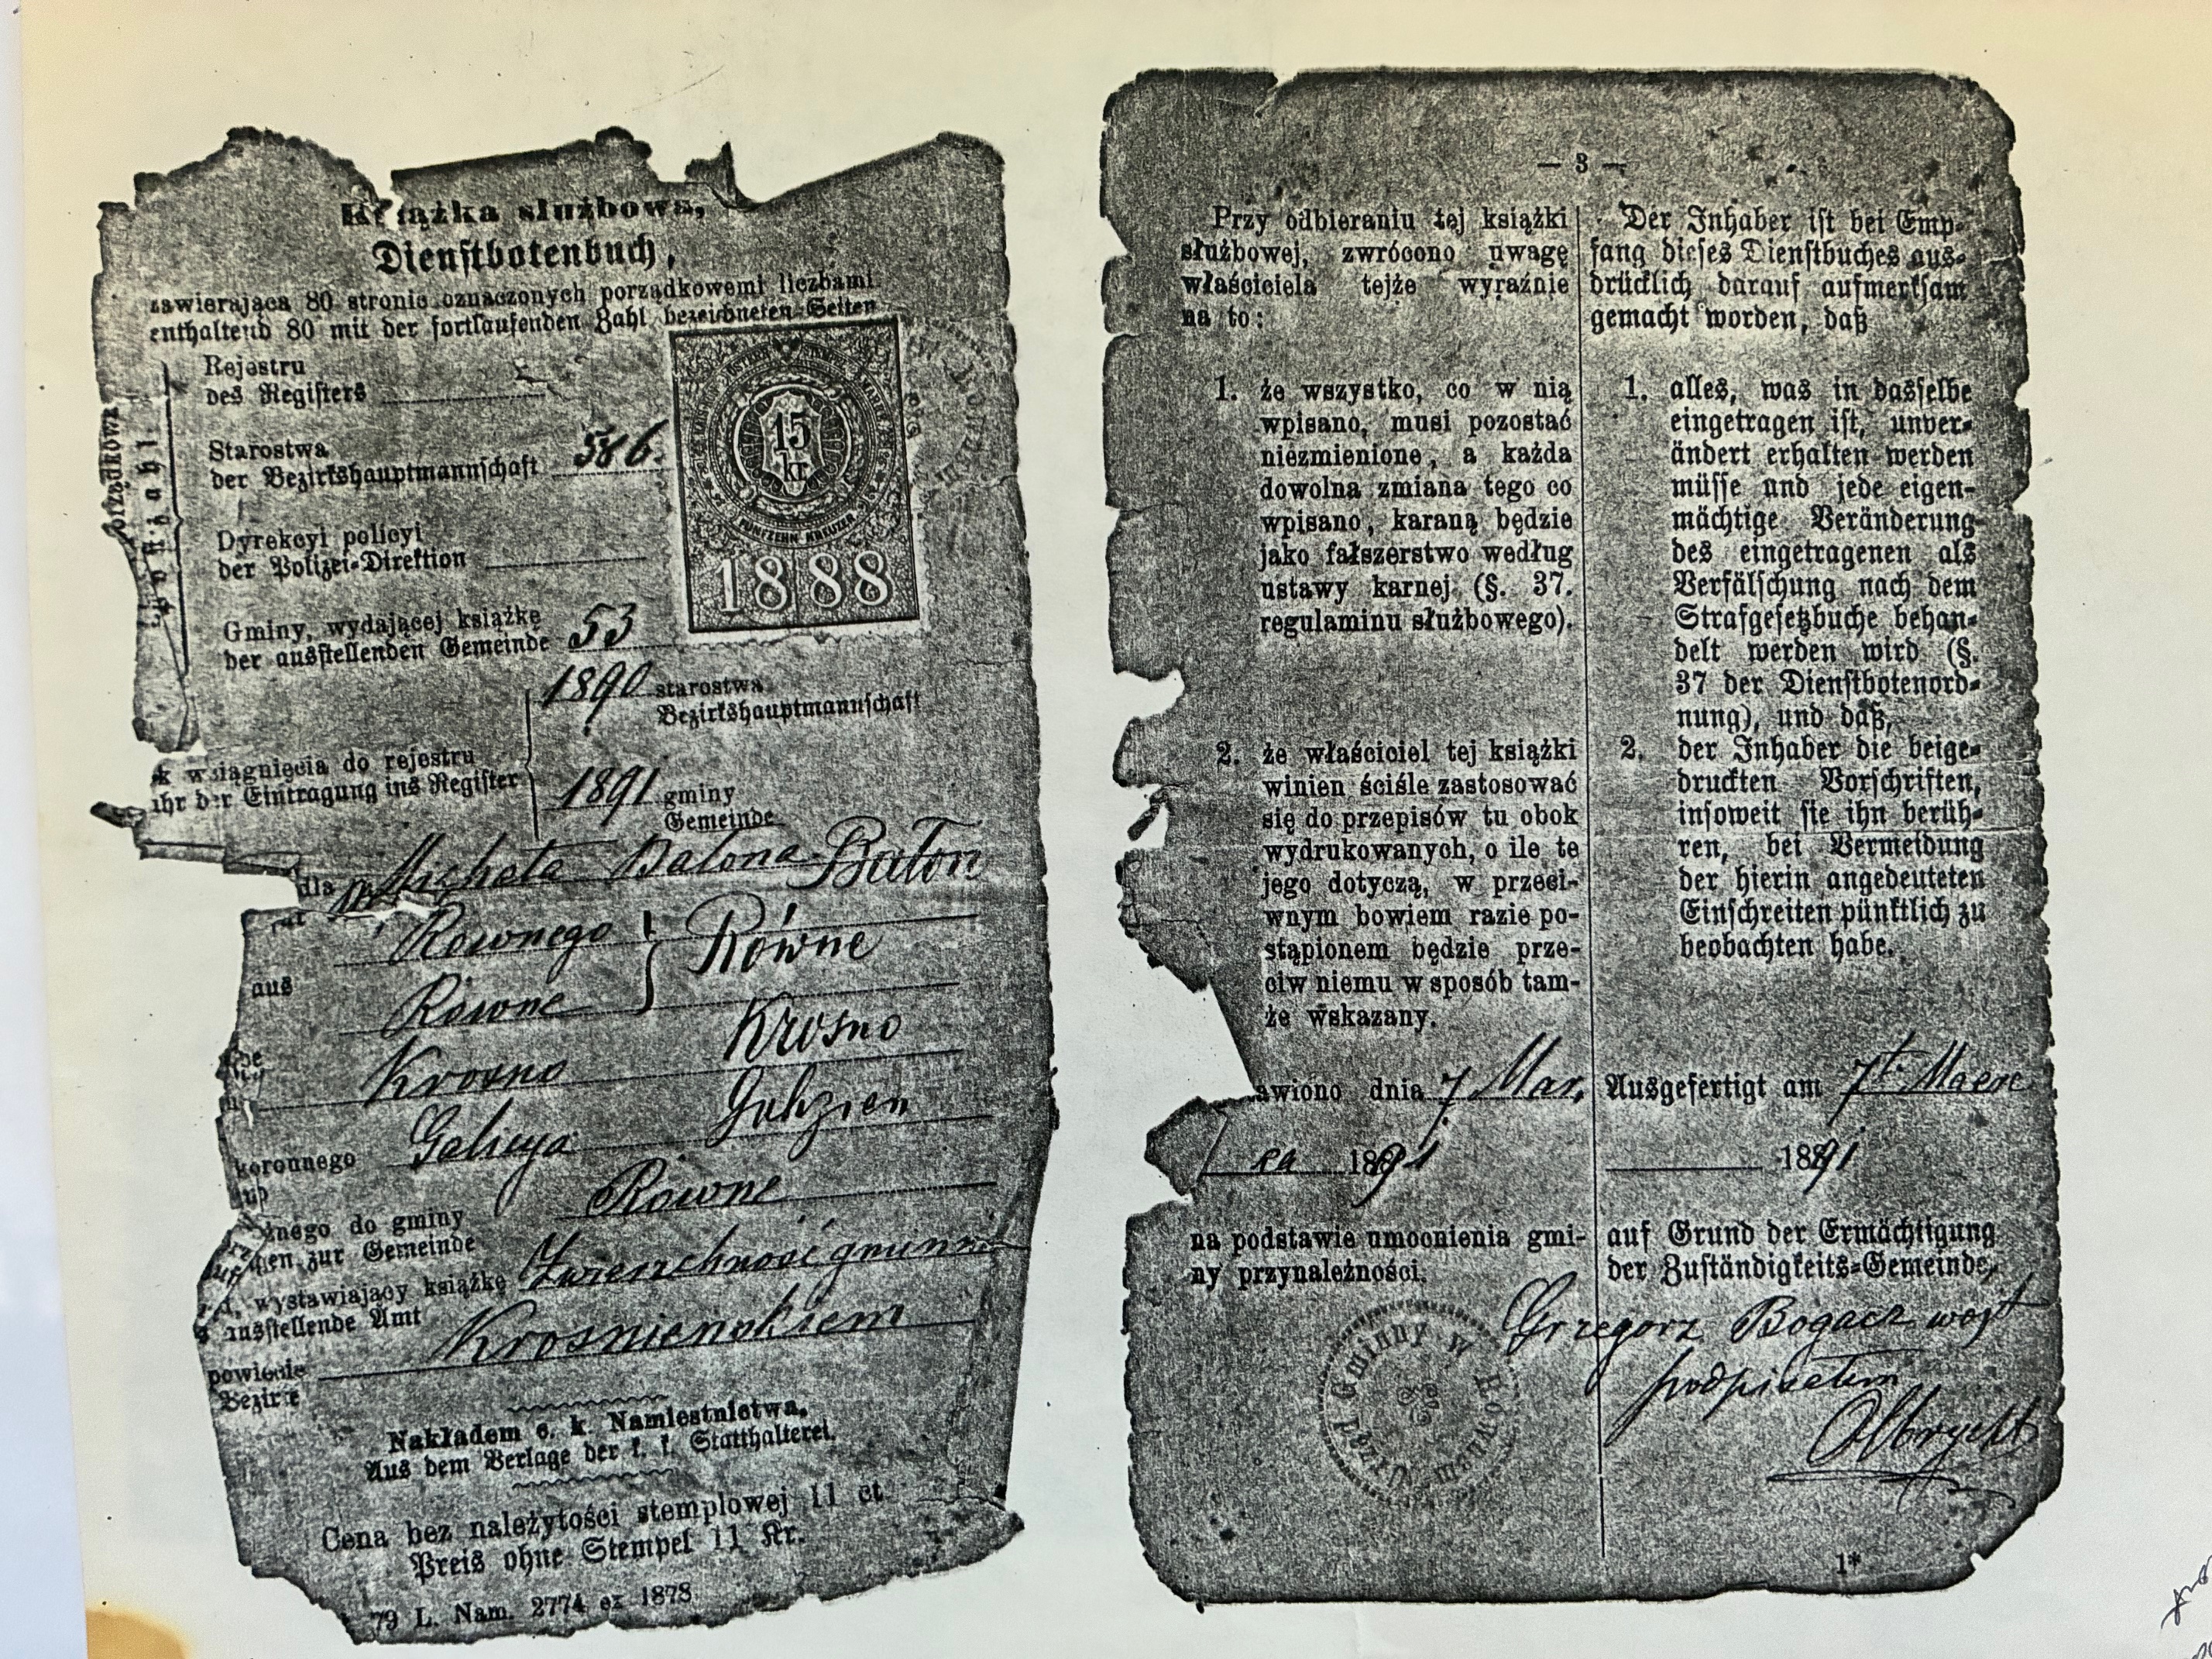 Książka służbowa,
Dienstbotenbuch,
zawierająca 80 stronic oznaczonych porządkowemi liczbami
enthaltend 80 mit der fortlaufenden Zahl bezeichneten Seiten
porządkowa
Rejestru
des Registers
Starostwa
der Bezirkshauptmannschaft 586.
Dyrekcyi policyi
der Polizei-Direktion
Gminy, wydającej książkę
der ausstellenden Gemeinde 53
15
kr.
FÜNFZEHN KREUZER
1888
1890 starostwa
Bezirkshauptmannschaft
k wciągnięcia do rejestru
ahr der Eintragung ins Register
1891 gminy
Gemeinde
dla Michała Batona Baton
Rownego } Równe
aus Rowne
Krosno Krosno
koronnego Galicya Galizien
żnego do gminy Rowne
zur Gemeinde
d, wystawiający książkę Zwierzchność gminna
ausstellende Amt
powiecie Krosnieńskiem
Bezirke
Nakładem c. k. Namiestnictwa.
Aus dem Verlage der k. k. Statthalterei.
Cena bez należytości stemplowej 11 ct
Preis ohne Stempel 11 Kr.
79 L. Nam. 2774 ex 1878
— 3 —
Przy odbieraniu tej książki
służbowej, zwrócono uwagę
właściciela tejże wyraźnie
na to:
1. że wszystko, co w nią
wpisano, musi pozostać
niezmienione, a każda
dowolna zmiana tego co
wpisano, karaną będzie
jako fałszerstwo według
ustawy karnej (§. 37.
regulaminu służbowego).
2. że właściciel tej książki
winien ściśle zastosować
się do przepisów tu obok
wydrukowanych, o ile te
jego dotyczą, w przeci-
wnym bowiem razie po-
stąpionem będzie prze-
ciw niemu w sposób tam-
że wskazany.
awiono dnia 7 Mar,
ca 1891
na podstawie umocnienia gmi-
ny przynależności.
Urząd Gminny w Równem
Der Inhaber ist bei Emp-
fang dieses Dienstbuches aus-
drücklich darauf aufmerksam
gemacht worden, daß
1. alles, was in dasselbe
eingetragen ist, unver-
ändert erhalten werden
müsse und jede eigen-
mächtige Veränderung
des eingetragenen als
Verfälschung nach dem
Strafgesetzbuche behan-
delt werden wird (§.
37 der Dienstbotenord-
nung), und daß,
2. der Inhaber die beige-
druckten Vorschriften,
insoweit sie ihn berüh-
ren, bei Vermeidung
der hierin angedeuteten
Einschreiten pünktlich zu
beobachten habe.
Ausgefertigt am 7t. Maerc
1891
auf Grund der Ermächtigung
der Zuständigkeits-Gemeinde,
Grzegorz Bogacz wojt
podpisałem
Olbrycht
1*